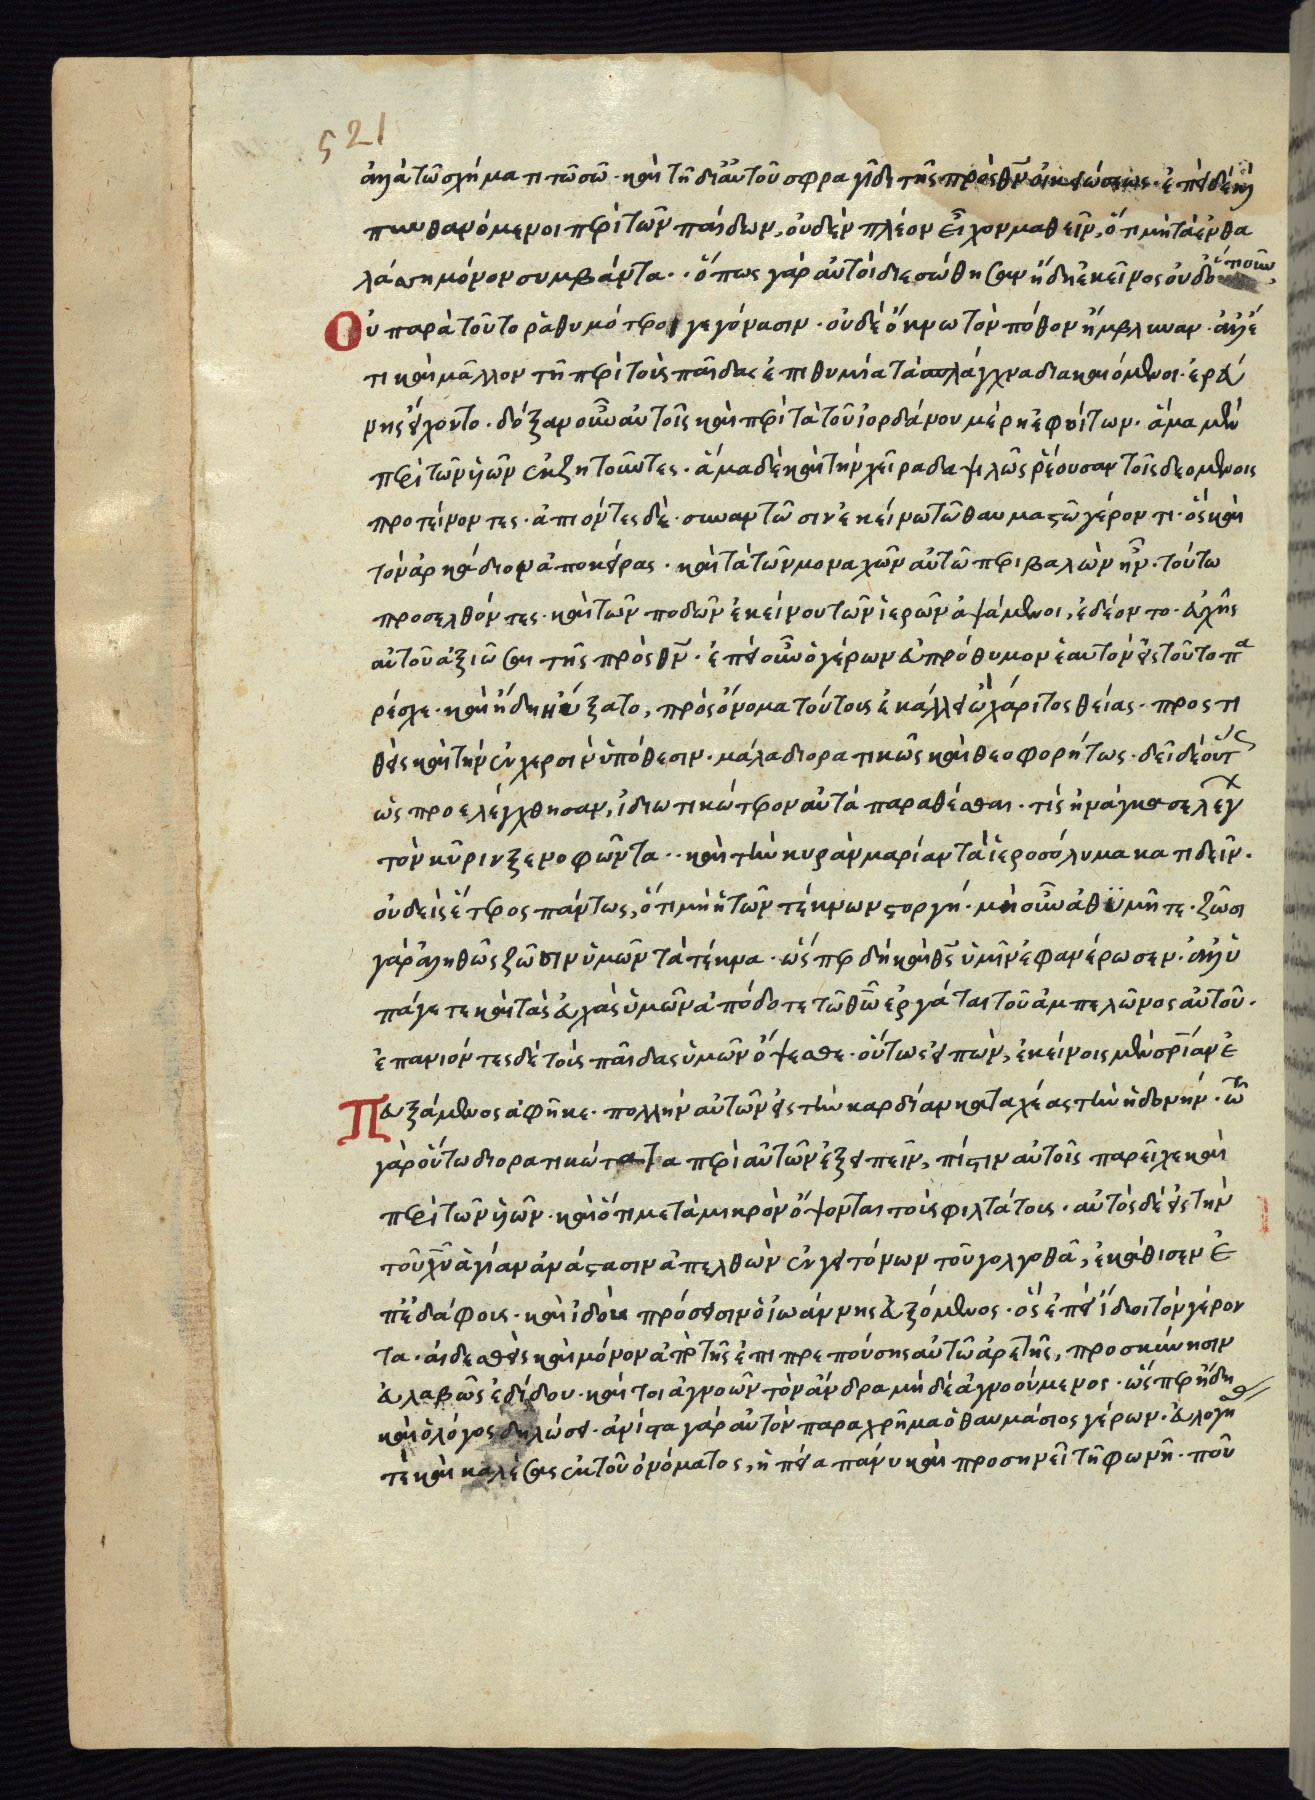 521
ἀλλὰ τῶ σχήματι τῶ σῶ· καὶ τῆ δι' αὐτοῦ σφραγῖδι τῆς πρὸς θν οἰκειώσεως· ἐπεὶ δὲ καὶ
πυνθανόμενοι περὶ τῶν παίδων, οὐδὲν πλέον εἶχον μαθεῖν, ὅτι μὴ τὰ ἐν θα
λάσση μόνον συμβάντα·· ὅπως γὰρ αὐτοὶ διεσώθησαν ἤδη ἐκεῖνος οὐδ'
Οὐ παρὰ τοῦτο ῥαθυμότεροι γεγόνασιν· οὐδὲ ὄκνω τὸν πόθον ἤμβλυναν· ἀλλ' ἔ
τι καὶ μᾶλλον τῆ περὶ τοὺς παῖδας ἐπιθυμία τὰ σπλάγχνα διακαιόμενοι· ἐρεύ
νης εἴχοντο· δόξαν οὖν αὐτοῖς καὶ περὶ τὰ τοῦ ἰορδάνου μέρη ἐφοίτων· ἅμα μὲν
περὶ τῶν υἱῶν ἐκζητοῦντες· ἅμα δὲ καὶ τὴν χεῖρα δαψιλῶς ῥέουσαν τοῖς δεομένοις
προτείνοντες· ἀπιόντες δὲ· συναντῶσιν ἐκείνω τῶ θαυμαστῶ γέροντι· ὃς καὶ
τὸν ἀρκάδιον ἀποκείρας· καὶ τὰ τῶν μοναχῶν αὐτῶ περιβαλὼν ἦν· τούτω
προσελθόντες· καὶ τῶν ποδῶν ἐκείνου τῶν ἱερῶν ἁψάμενοι, ἐδέοντο· εὐχῆς
αὐτοῦ ἀξιῶσαι τῆς πρὸς θν· ἐπεὶ οὖν ὁ γέρων εὐπρόθυμον ἑαυτὸν εἰς τοῦτο πα
ρέσχε· καὶ ἤδη ηὔξατο, πρὸς ὄνομα τούτους ἐκάλει ὢ χάριτος θείας· προστι
θεὶς καὶ τὴν ἐν χερσὶν ὑπόθεσιν· μάλα διορατικῶς καὶ θεοφορήτως· δεῖ δὲ οὕτως
ὡς προελέγχθησαν, ἰδιωτικώτερον αὐτὰ παραθέσθαι· τίς ἠνάγκασε λέγων
τὸν κῦριν ξενοφῶντα·· καὶ τὴν κυρὰν μαρίαν τὰ ἱεροσόλυμα κατιδεῖν·
οὐδεὶς ἕτερος πάντως, ὅτι μὴ ἡ τῶν τέκνων στοργή· μὴ οὖν ἀθυμῆτε· ζῶσι
γὰρ ἀληθῶς ζῶσιν ὑμῶν τὰ τέκνα· ὥσπερ δὴ καὶ θς ὑμῖν ἐφανέρωσεν· ἀλλ' ὑ
πάγετε καὶ τὰς εὐχὰς ὑμῶν ἀπόδοτε τῶ θῶ ἐργάται τοῦ ἀμπελῶνος αὐτοῦ·
ἐπανιόντες δὲ τοὺς παῖδας ὑμῶν ὄψεσθε· οὕτως εἰπὼν, ἐκείνοις μὲν σριαν ἐ
Πευξάμενος ἀφῆκε· πολλὴν αὐτῶν εἰς τὴν καρδίαν καταχέας τὴν ἡδονήν· τῶ
γὰρ οὕτω διορατικώτατα περὶ αὐτῶν ἐξειπεῖν, πίστιν αὐτοῖς παρεῖχε καὶ
περὶ τῶν υἱῶν· καὶ ὅτι μετὰ μικρὸν ὄψονται τοὺς φιλτάτους· αὐτὸς δὲ εἰς τὴν
τοῦ χυ ἁγίαν ἀνάστασιν ἀπελθὼν ἐν γειτόνων τοῦ γολγοθᾶ, ἐκάθισεν ἐ
π' ἐδάφους· καὶ ἰδοὺ πρόσεισιν ὁ ἰωάννης εὐξόμενος· ὃς ἐπεὶ ἴδοι τὸν γέρον
τα· αἰδεσθεὶς καὶ μόνον ἀπὸ τῆς ἐπιπρεπούσης αὐτῶ ἀρετῆς, προσκύνησιν
εὐλαβῶς ἐδίδου· καίτοι ἀγνοῶν τὸν ἄνδρα μὴ δὲ ἀγνοούμενος· ὥσπερ ἤδη
καὶ ὁ λόγος δηλώσει· ἀνίστα γὰρ αὐτὸν παραχρῆμα ὁ θαυμάσιος γέρων· εὐλογή
τε καὶ καλέσας ἐκ τοῦ ὀνόματος, ἠπεία πάνυ καὶ προσηνεῖ τῆ φωνῆ· ποῦ